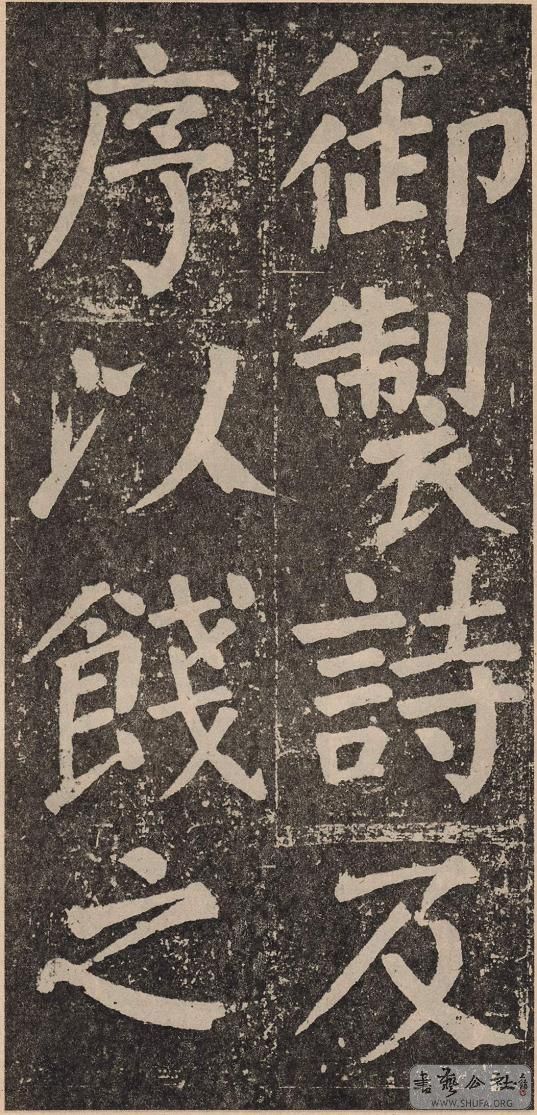 御製詩及
序以餞之
書藝公社
WWW.SHUFA.ORG